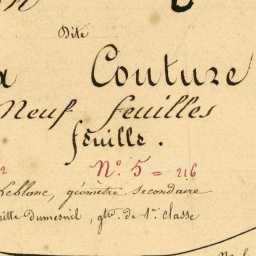 Dite
Couture
Neuf feuilles
feuille.
N.º 5 = 216
Leblanc, géomètre secondaire
Dumesnil, g.tre de 1.re classe